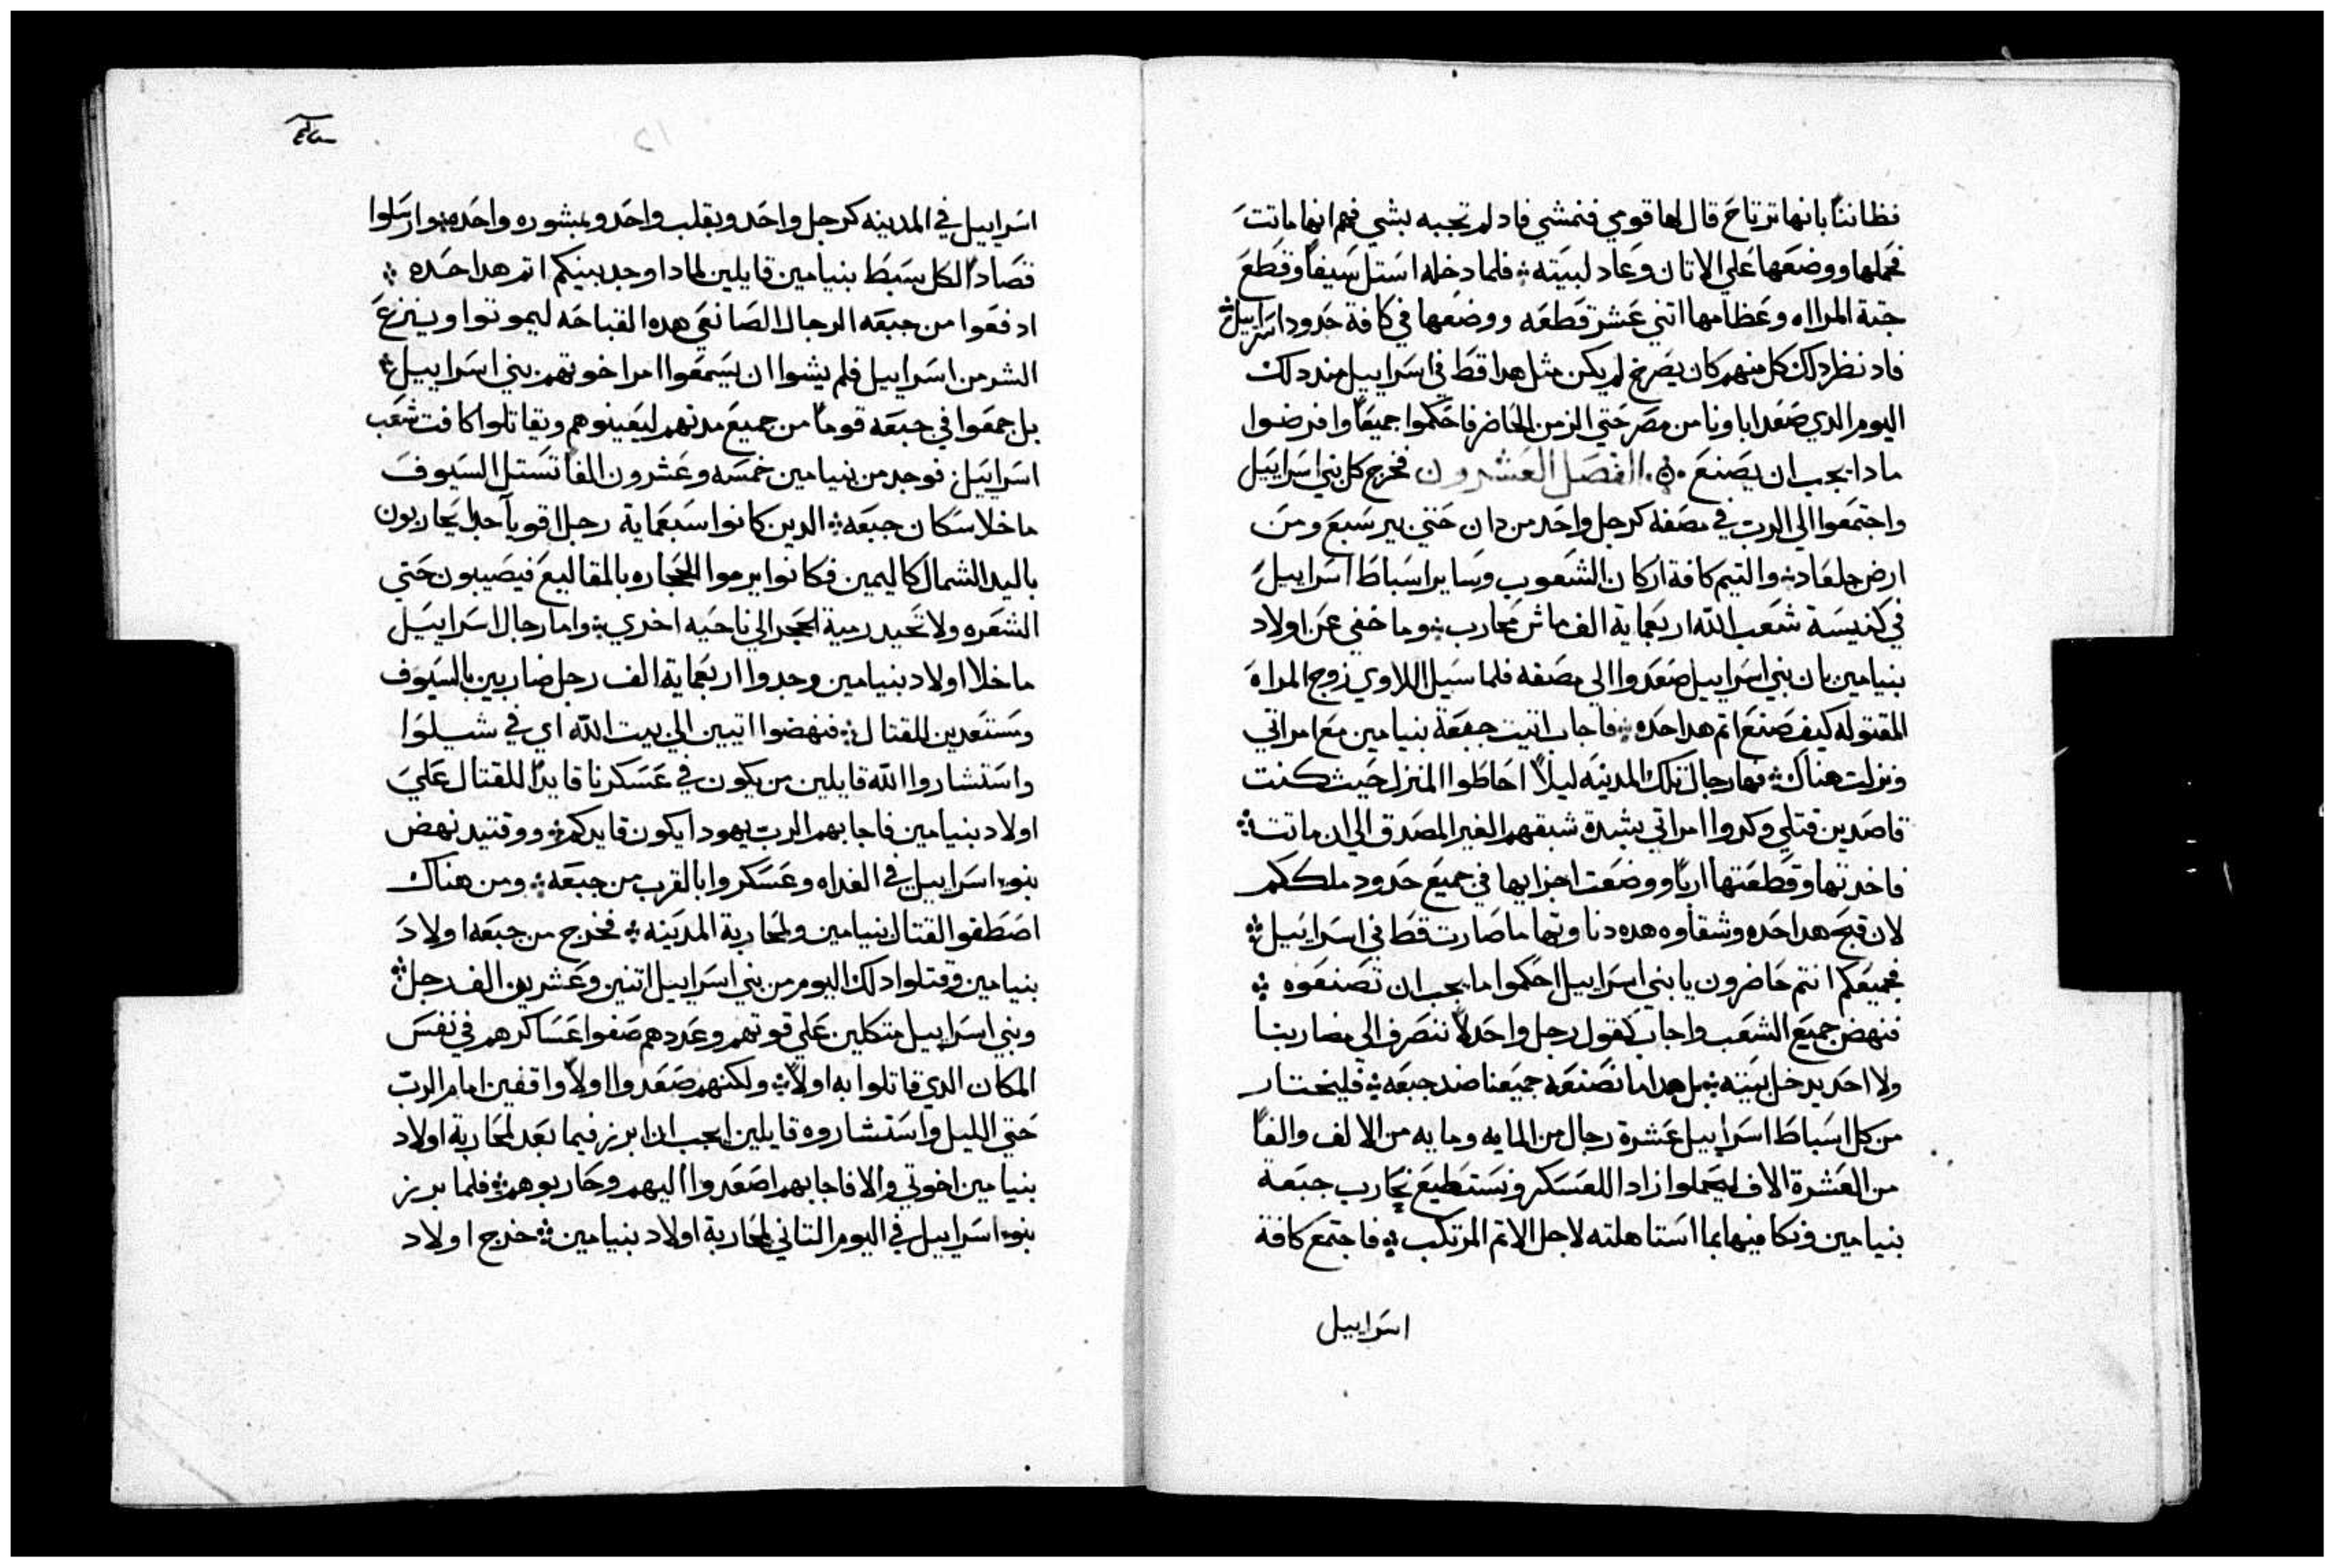 فظاننًا بانها ترتاح قال لها قومي فنمشي فاد لم تجبه بشي فهم انها ماتت
فحملها ووضعها علي الاتان وعاد لبيته ÷ فلما دخله استل سيفاً وقطع
جتة المرااه وعظامها اتني عشر قطعه ووضعها في كافة حدود اسراييل ÷
فاد نظر دلك كل منهم كان يصرخ لم يكن مثل هدا قط في اسراييل مند دلك
اليوم الدي صعد اباونا من مصر حتي الزمن الحاضر فاحكموا جميعاً وافرضوا
مادا يجب ان يصنع .ه. الفصل العشرون فخرج كل بني اسراييل
واجتمعوا الي الرب في مصفه كرجل واحد من دان حتي بير سبع ومن
ارض جلعاد ÷ والتيم كافة اركان الشعوب وساير اسباط اسراييل
في كنيسة شعب الله اربعماية الف ماش محارب ÷ وما خفي عن اولاد
بنيامين بان بني اسراييل صعدوا الي مصفه فلما سيل اللاوي زوج المراة
المقتوله كيف صنع اتم هدا حده ÷ فاجاب اتيت جبعة بنيامين مع امراتي
ونزلت هناك ÷ فهارجال تلك المدينه ليلاً احاطوا المنزل حيث كنت
قاصدين قتلي وكدوا امراتي بشدة شبقهم الغير المصدق الي ان ماتت ÷
فاخدتها وقطعتها ارباً ووضعت اجزايها في جميع حدود ملككم
لان قبح هدا حده وشقاوه هده دناوتها ما صارت قط في اسراييل ÷
فجميعكم انتم حاضرون يا بني اسراييل احكموا ما يجب ان تصنعوه ÷
فنهض جميع الشعب واجاب كقول رجل واحد لا ننصرف الي مضاربنا
ولا احد يدخل بيته ÷ بل هدا ما نصنعه جميعنا ضد جبعه ÷ فليختار
من كل اسباط اسراييل عشرة رجال من المايه ومايه من الالف والفاً
من العشرة الاف ليحملوا زادا للعسكر ونستطيع نحارب جبعة
بنيامين ونكافيها بما استاهلته لاجل الاتم المرتكب ÷ فاجتمع كافة
اسراييل
اسراييل في المدينه كرجل واحد وبقلب واحد وبمشوره واحده ÷ وارسلوا
قصاداً لكل سبط بنيامين قايلين لمادا وجد بينكم اتم هدا حده ÷
ادفعوا من جبعه الرجال الصانعي هده القباحه ليموتوا وينزع
الشر من اسراييل فلم يشوا ان يسمعوا امر اخوتهم بني اسراييل ÷
بل جمعوا في جبعه قوماً من جميع مدنهم ليعينوهم ويقاتلوا كافت شعب
اسراييل فوجد من بنيامين خمسه وعشرون الفاً تستل السيوف
ما خلا سكان جبعه ÷ الدين كانوا سبعماية رجل اقويآ جداً يحاربون
باليد الشمال كاليمين فكانوا يرموا الحجاره بالمقاليع فيصيبون حتي
الشعره ولا تحيد رمية الحجر الي ناحيه اخري ÷ واما رجال اسراييل
ما خلا اولاد بنيامين وجدوا اربعماية الف رجل ضاربين بالسيوف
ومستعدين للقتال ÷ فنهضوا اتيين الي بيت الله اي في شيلوا
واستشاروا الله قايلين من يكون في عسكرنا قايداً للقتال علي
اولاد بنيامين فاجابهم الرب يهودا يكون قايدكم ÷ ووقتيد نهض
بنو اسراييل في الغداه وعسكروا بالقرب من جبعه ÷ ومن هناك
اصطفوا لقتال بنيامين ولمحاربة المدينه ÷ فخرج من جبعه اولاد
بنيامين وقتلوا دلك اليوم من بني اسراييل اتنين وعشرين الف رجل ÷
وبني اسراييل متكلين علي قوتهم وعددهم صفوا عساكرهم في نفس
المكان الدي قاتلوا به اولاً ÷ ولكنهم صعدوا اولاً واقفين امام الرب
حتي الليل واستشاروه قايلين ايجب ان ابرز فيما بعد لمحاربة اولاد
بنيامين اخوتي والا فاجابهم اصعدوا اليهم وحاربوهم ÷ فلما برز
بنو اسراييل في اليوم التاني لمحاربة اولاد بنيامين ÷ خرج اولاد